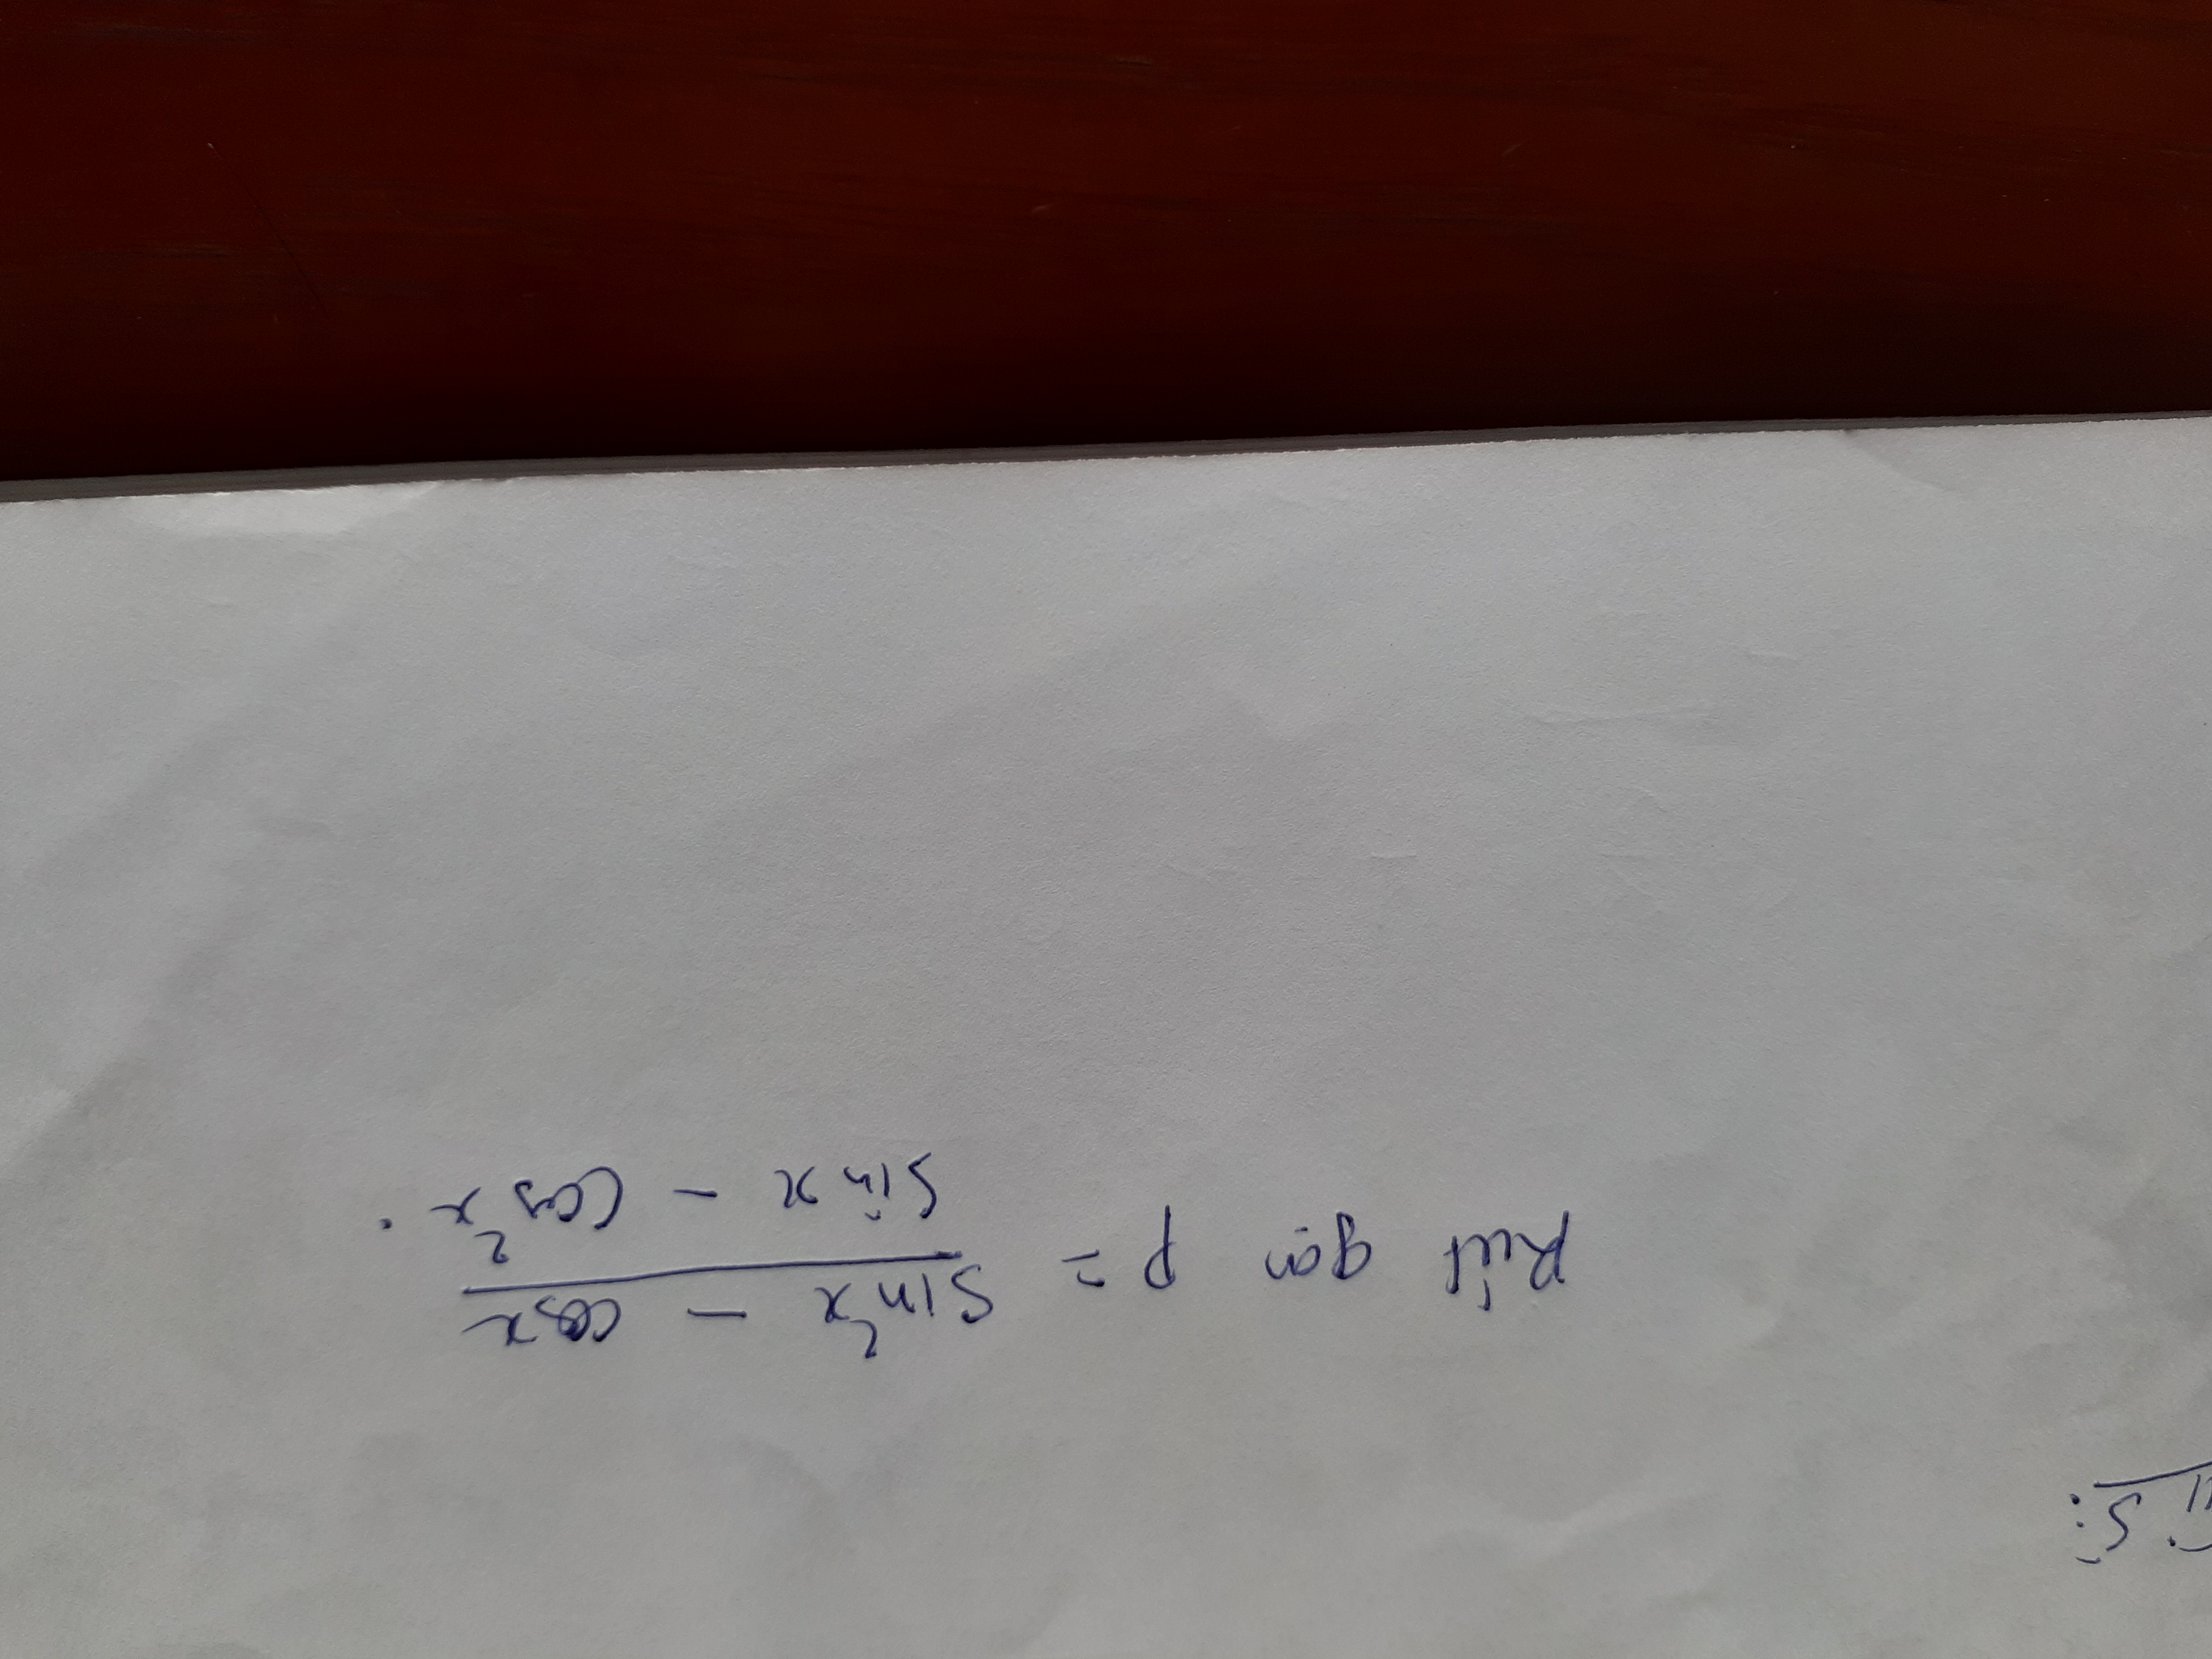 Rút gọn P = \frac{\sin^2 x - \cos x}{\sin x - \cos^2 x}.